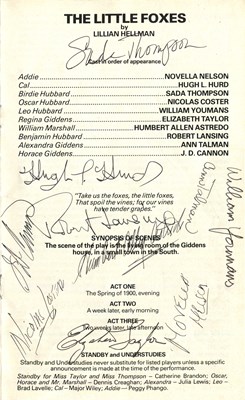 THE LITTLE FOXES
by
LILLIAN HELLMAN
Sada Thompson
Cast in order of appearance
Addie NOVELLA NELSON
Cal HUGH L. HURD
Birdie Hubbard SADA THOMPSON
Oscar Hubbard NICOLAS COSTER
Leo Hubbard WILLIAM YOUMANS
Regina Giddens ELIZABETH TAYLOR
William Marshall HUMBERT ALLEN ASTREDO
Benjamin Hubbard ROBERT LANSING
Alexandra Giddens ANN TALMAN
Horace Giddens J. D. CANNON
Hugh L Hurd
Ann Talman
William Youmans
"Take us the foxes, the little foxes,
That spoil the vines; for our vines
have tender grapes."
Robert Lansing
SYNOPSIS OF SCENES
The scene of the play is the living room of the Giddens
house, in a small town in the South.
ACT ONE
The Spring of 1900, evening
ACT TWO
A week later, early morning
Novella Nelson
ACT THREE
Two weeks later, late afternoon
Elizabeth Taylor
STANDBY and UNDERSTUDIES
Standby and Understudies never substitute for listed players unless a specific
announcement is made at the time of the performance.
Standby for Miss Taylor and Miss Thompson – Catherine Brandon; Oscar,
Horace and Mr. Marshall – Dennis Creaghan; Alexandra – Julia Lewis; Leo –
Brad Lavelle; Cal – Major Wiley; Addie – Peggy Phango.